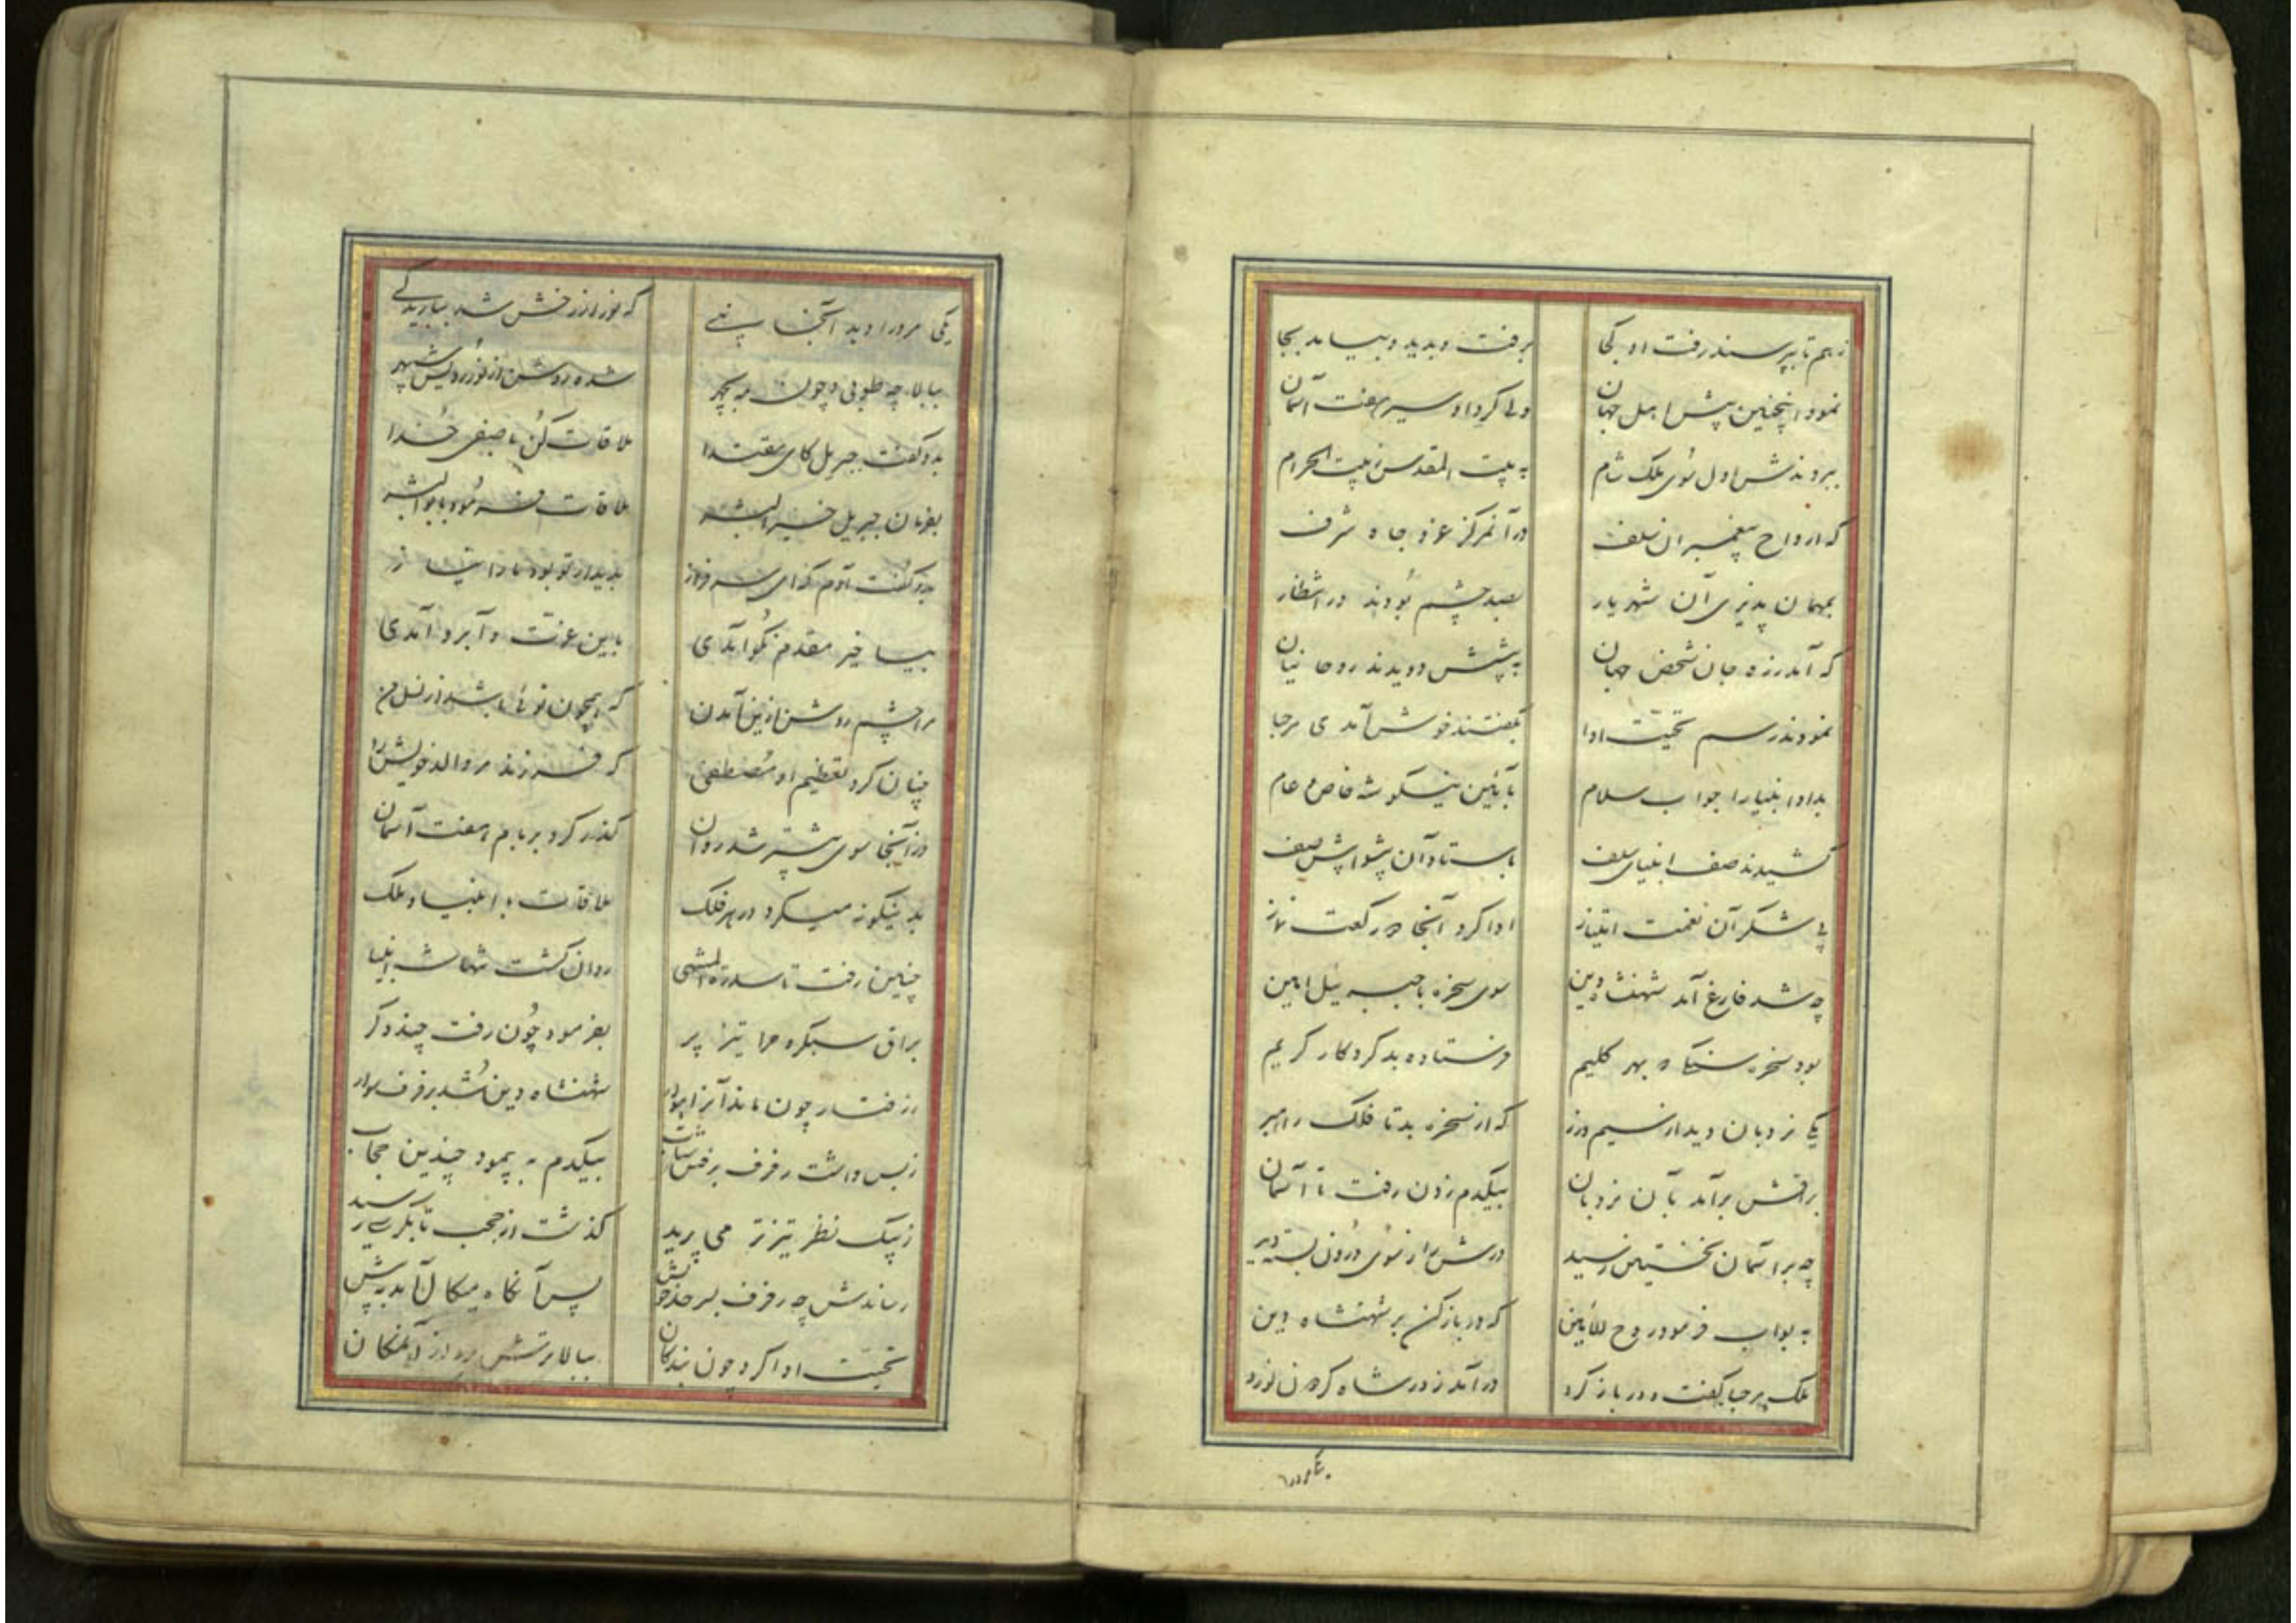 ز هم تا بپرسند رفت او کجا برفت و بدید و بیامد بجا
نمود اینچنین پیش اهل جهان ولی کرد او سیر هفت آسمان
ببردندش اول سوی ملک شام به بیت المقدس ز بیت الحرام
که ارواح پیغمبران سلف در آنمرکز عز و جاه شرف
بمهمان پذیری آن شهریار بصد چشم بودند در انتظار
که آمد ز ره جان شخص جهان به پیشش دویدند روحانیان
نمودند رسم تحیت ادا بگفتند خوش آمدی مرحبا
بداد انبیا را جواب سلام بآئین نیکو شه خاص و عام
کشیدند صف انبیای سلف باستاد آن پیشوا پیش صف
پی شکر آن نعمت امتیاز ادا کرد آنجا دو رکعت نماز
چه شد فارغ آمد شهنشاه دین سوی سخره با جبرئیل امین
بود سخره سنگ که بهر کلیم فرستاده بد کردکار کریم
یکی نردبان دید از سیم و زر که از سخره بد تا فلک راهبر
براقش برآمد بآن نردبان بیکدم زدن رفت تا آسمان
چه بر آسمان نخستین رسید درش را ز سوی درون بسته دید
به بواب فرمود روح الامین که در باز کن بر شهنشاه دین
ملک مرحبا گفت و در باز کرد در آمد ز در شاه گردن نورد
یکی مرد را دید آنجا بسی که نور از رخش شد ببارید کی
ببالا چه طوبی و چون مه بچهر شده روشن از نور رویش سپهر
بدو گفت جبریل کای مقتدا ملاقات کن با صفی خدا
بفرمان جبریل خیر البشر ملاقات فرمود با بوالبشر
بدو گفت آدم که ای سرفراز بدیدار تو بود ما را نیاز
بیا خیر مقدم نکو آمدی باین عزت و آبرو آمدی
مرا چشم روشن ازین آمدن که همچون توئی باشد از نسل من
چنان کرد تعظیم او مصطفی که فرزند مر والد خویش را
وز آنجا سوی پیشتر شد روان گذر کرد بر بام هفت آسمان
بدینگونه میکرد در هر فلک ملاقات با انبیا و ملک
چنین رفت تا سدرة المنتهی روان گشت تنها شه انبیا
براق سبکره هما تیز پر بفرمود چون رفت چند دکر
ز رفتار چون ماند آنراهوار شهنشاه دین شد برفرف سوار
ز بس داشت رفرف برفتن شتاب بیکدم به پیمود چندین حجاب
ز پیک نظر تیزتر می پرید گذشت از حجب تا بکرسی رسید
رساندش چه رفرف بسر حد خویش پس آنگاه میکال آمد به پیش
تحیت ادا کرد چون بندگان ببالا برتش برد از آلمکان